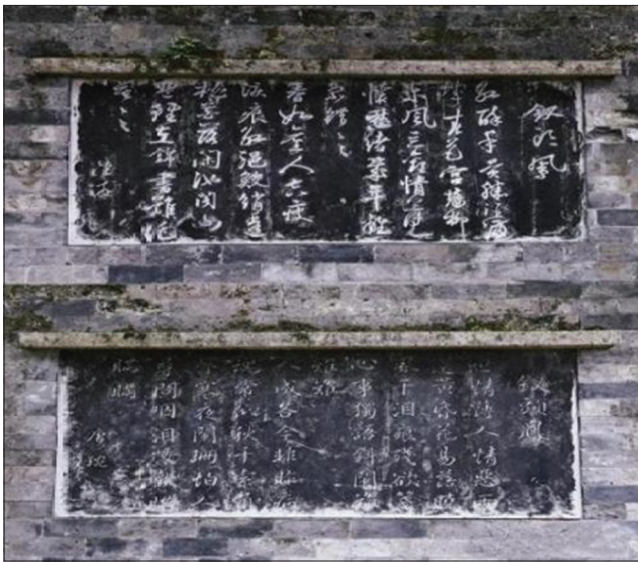 釵頭鳳
紅酥手黃縢酒滿
城春色宮牆柳
東風惡歡情薄一
懷愁緒幾年離
索錯々
春如舊人空瘦
淚痕紅浥鮫綃透
桃花落閒池閣山
盟雖在錦書難托
莫々
陸游
釵頭鳳
世情薄人情惡雨
送黃昏花易落曉
風乾淚痕殘欲箋
心事獨語斜闌難
難難
人成各今非昨病
魂常似秋千索角
聲寒夜闌珊怕人
尋問咽淚裝歡瞞
瞞瞞
唐琬